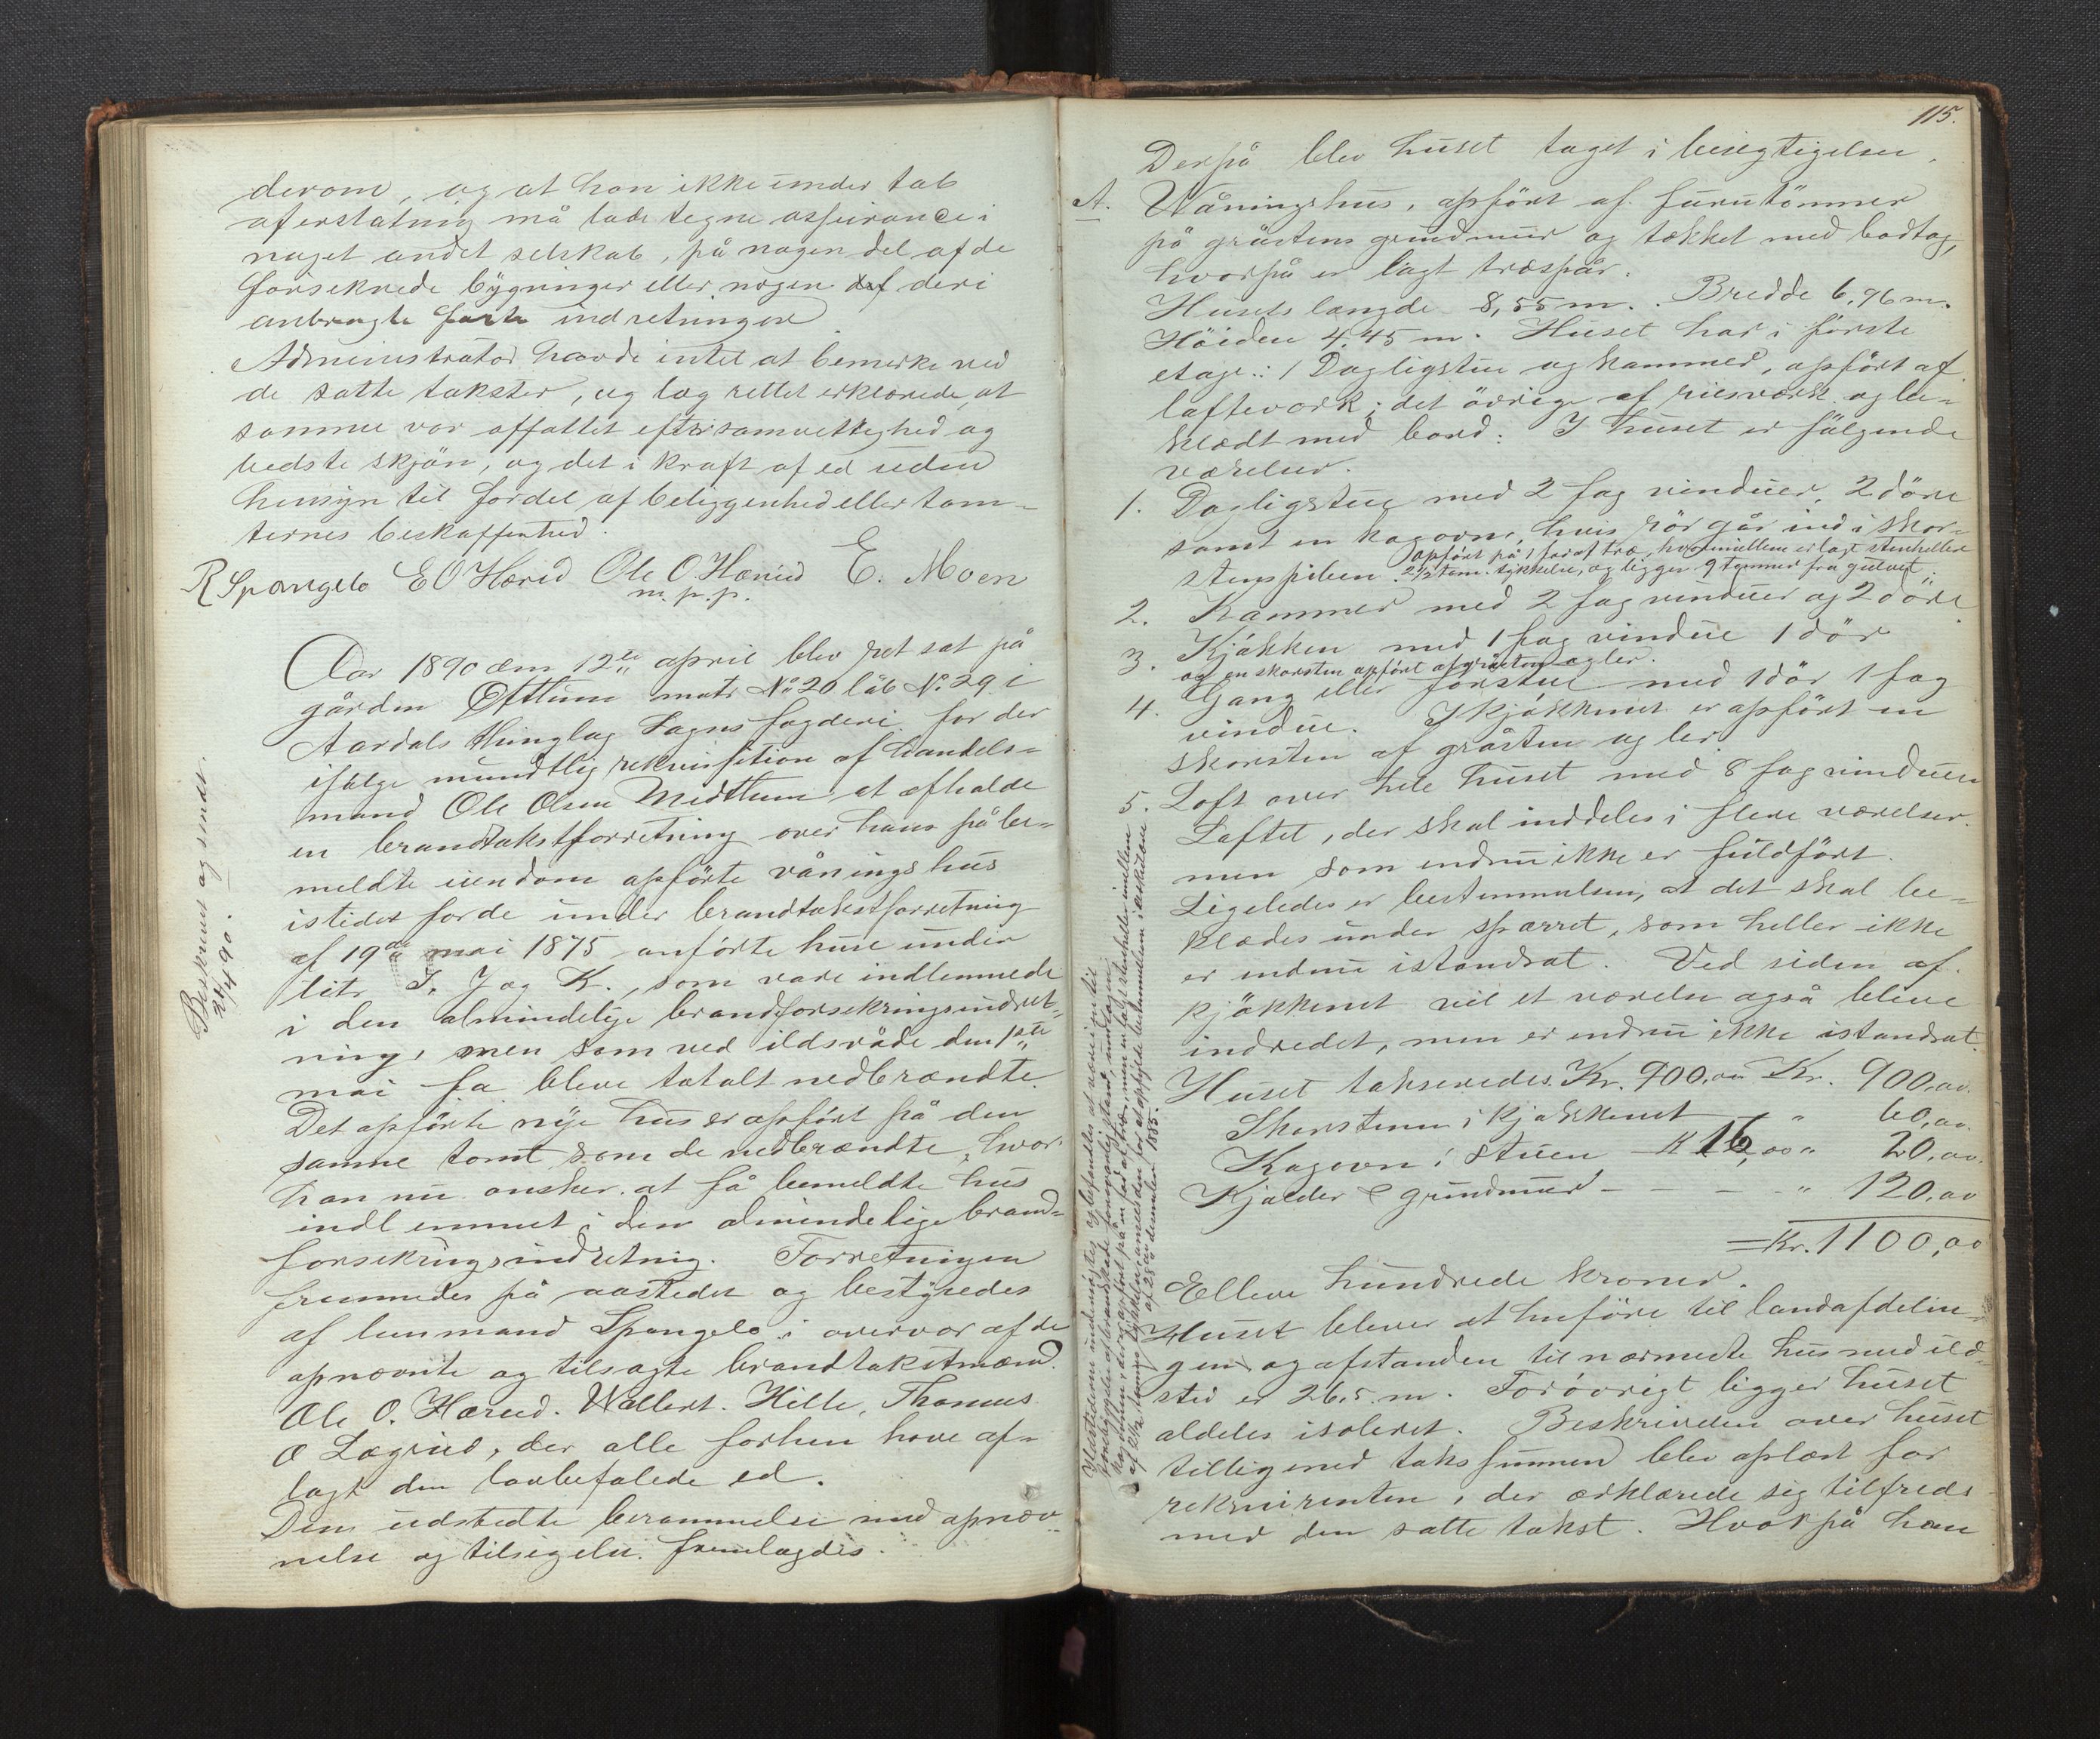 derom, og at han ikke under tab
af erstatning må lade tegne assurance i
noget andet selskab, på nogen del af de
forsekrede bygninger eller nogen deri
anbragte faste indretninger
Administrator havde intet at bemerke ved
de satte takster, og lagrettet erklærede, at
samme var affattet efter samvittighed og
bedste skjøn, og det i kraft af ed uden
hensyn til fordel af beliggenhed eller tom-
ternes beskaffenhed.
R Spangelo E O Hærid Ole O. Hæreid E. Moen
m. p. p.
Aar 1890 den 12te april blev ret sat på
gården Ofttun matr No 20 løb No 29 i
Aardals thinglag Sogns fogderi for der
ifølge mundtlig rekvisition af handels-
mand Ole Olsen Midttun at afholde
en brandtakstforretning over hans på be-
meldte eiendom opførte våningshus
istedet for de under brandtakstforretning
af 19de mai 1875 anførte huse under
litr I. J og K., som vare indlemmede
i den almindelige brandforsekringsindret-
ning, men som ved ildsvåde den 1ste
mai f.a. bleve totalt nedbrændte.
Det opførte nye hus er opført på den
samme tomt som de nedbrændte, hvor
han nu ønsker at få bemeldte hus
indlemmet i den almindelige brand-
forsekringsindretnig. Forretningen
fremmedes på aastedet og bestyredes
af lensmand Spangelo i overvær af de
opnævnte og tilsagte brandtakstmænd.
Ole O. Hæreid. Wellert. Hille, Thomas
O Lægreid, der alle forhen have af-
lagt den lovbefalede ed.
Den udstedte berammelse med opnæv-
nelse og tilsigelse fremlagdes.
Beskrevet og sendt.
24/4 90.
115.
Derpå blev huset taget i besigtigelse.
A. Wåningshus, opført af furutømmer
på gråstens grundmur og tækket med bordtag,
hvorpå er lagt træspån.
Husets længde 8,55 m. Bredde 6,96 m.
Høiden 4,45 m. Huset har i første
etage: 1 Dagligstue og kammer, opført af
lafteværk; det øvrige af riesværk og be-
klædt med bord: I huset er følgende
værelser.
1. Dagligstue med 2 fag vinduer, 2 døre
samt en kagovn, hvis rør går ind i skor-
opført på 1 fod af træ, hvorimellem er lagt stenheller
stenspiben. 2 1/2 tom. tykkelse, og ligger 9 tommer fra gulvet.
2. Kammer med 2 fag vinduer og 2 døre
3. Kjøkken med 1 fag vindue 1 dør
og en skorsten opført af gråsten og ler.
4. Gang eller forstue med 1 dør 1 fag
vindue. I kjøkkenet er opført en
skorsten af gråsten og ler.
5. Loft over hele huset med 8 fag vinduer
Loftet, der skal inddeles i flere værelser.
men som endnu ikke er fuldført.
Ligeledes er bestemmelsen, at det skal be-
klædes under sperret, som heller ikke
er endnu istandsat. Ved siden af
kjøkkenet vil et værelse også blive
indredet, men er endnu ikke istandsat.
Huset takseredes Kr. 900,00 Kr. 900,00.
Skorstenen i kjøkkenet - " 60,00.
Kagovn i stuen - K 16,00 " 20,00.
Kjælder & grundmur - - - - " 120,00
= Kr. 1100,00
Elleve hundrede kroner.
Huset bliver at henføre til landafdelin-
gen og afstanden til nærmeste hus med ild-
sted er 26,5 m. Forøvrigt ligger huset
aldeles isoleret. Beskrivelsen over huset
tilligemed takssummen blev oplæst for
rekvirenten, der erklærede sig tilfreds
med den satte takst. Hvorpå han
Ildstederne undersøgtes og befandtes at være i en til
forebyggelse af brandskade forsvarlig stand, undtagen
kagovnen, der er opført på en fod af træ, men er lagt stenheller imellem
af 2 1/2 tommes tykkelse, istedet for at opfylde bestemmelsen i cirkulære
af 28de december 1885.